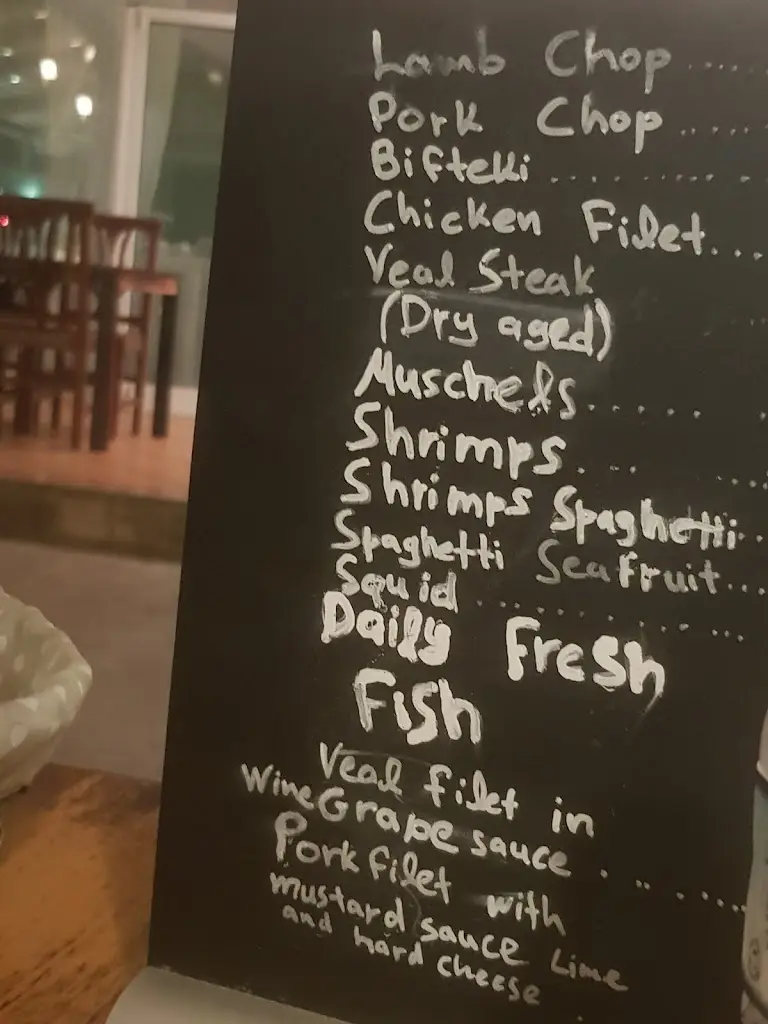 Lamb Chop ......
Pork Chop ......
Bifteki ............
Chicken Filet....
Veal Steak
(Dry aged)
Muschels......
Shrimps. ...
Shrimps Spaghetti..
Spaghetti Seafruit...
Squid ............
Daily Fresh
Fish
Veal filet in
WineGrape sauce ........
Pork filet with
mustard sauce Lime
and hard cheese